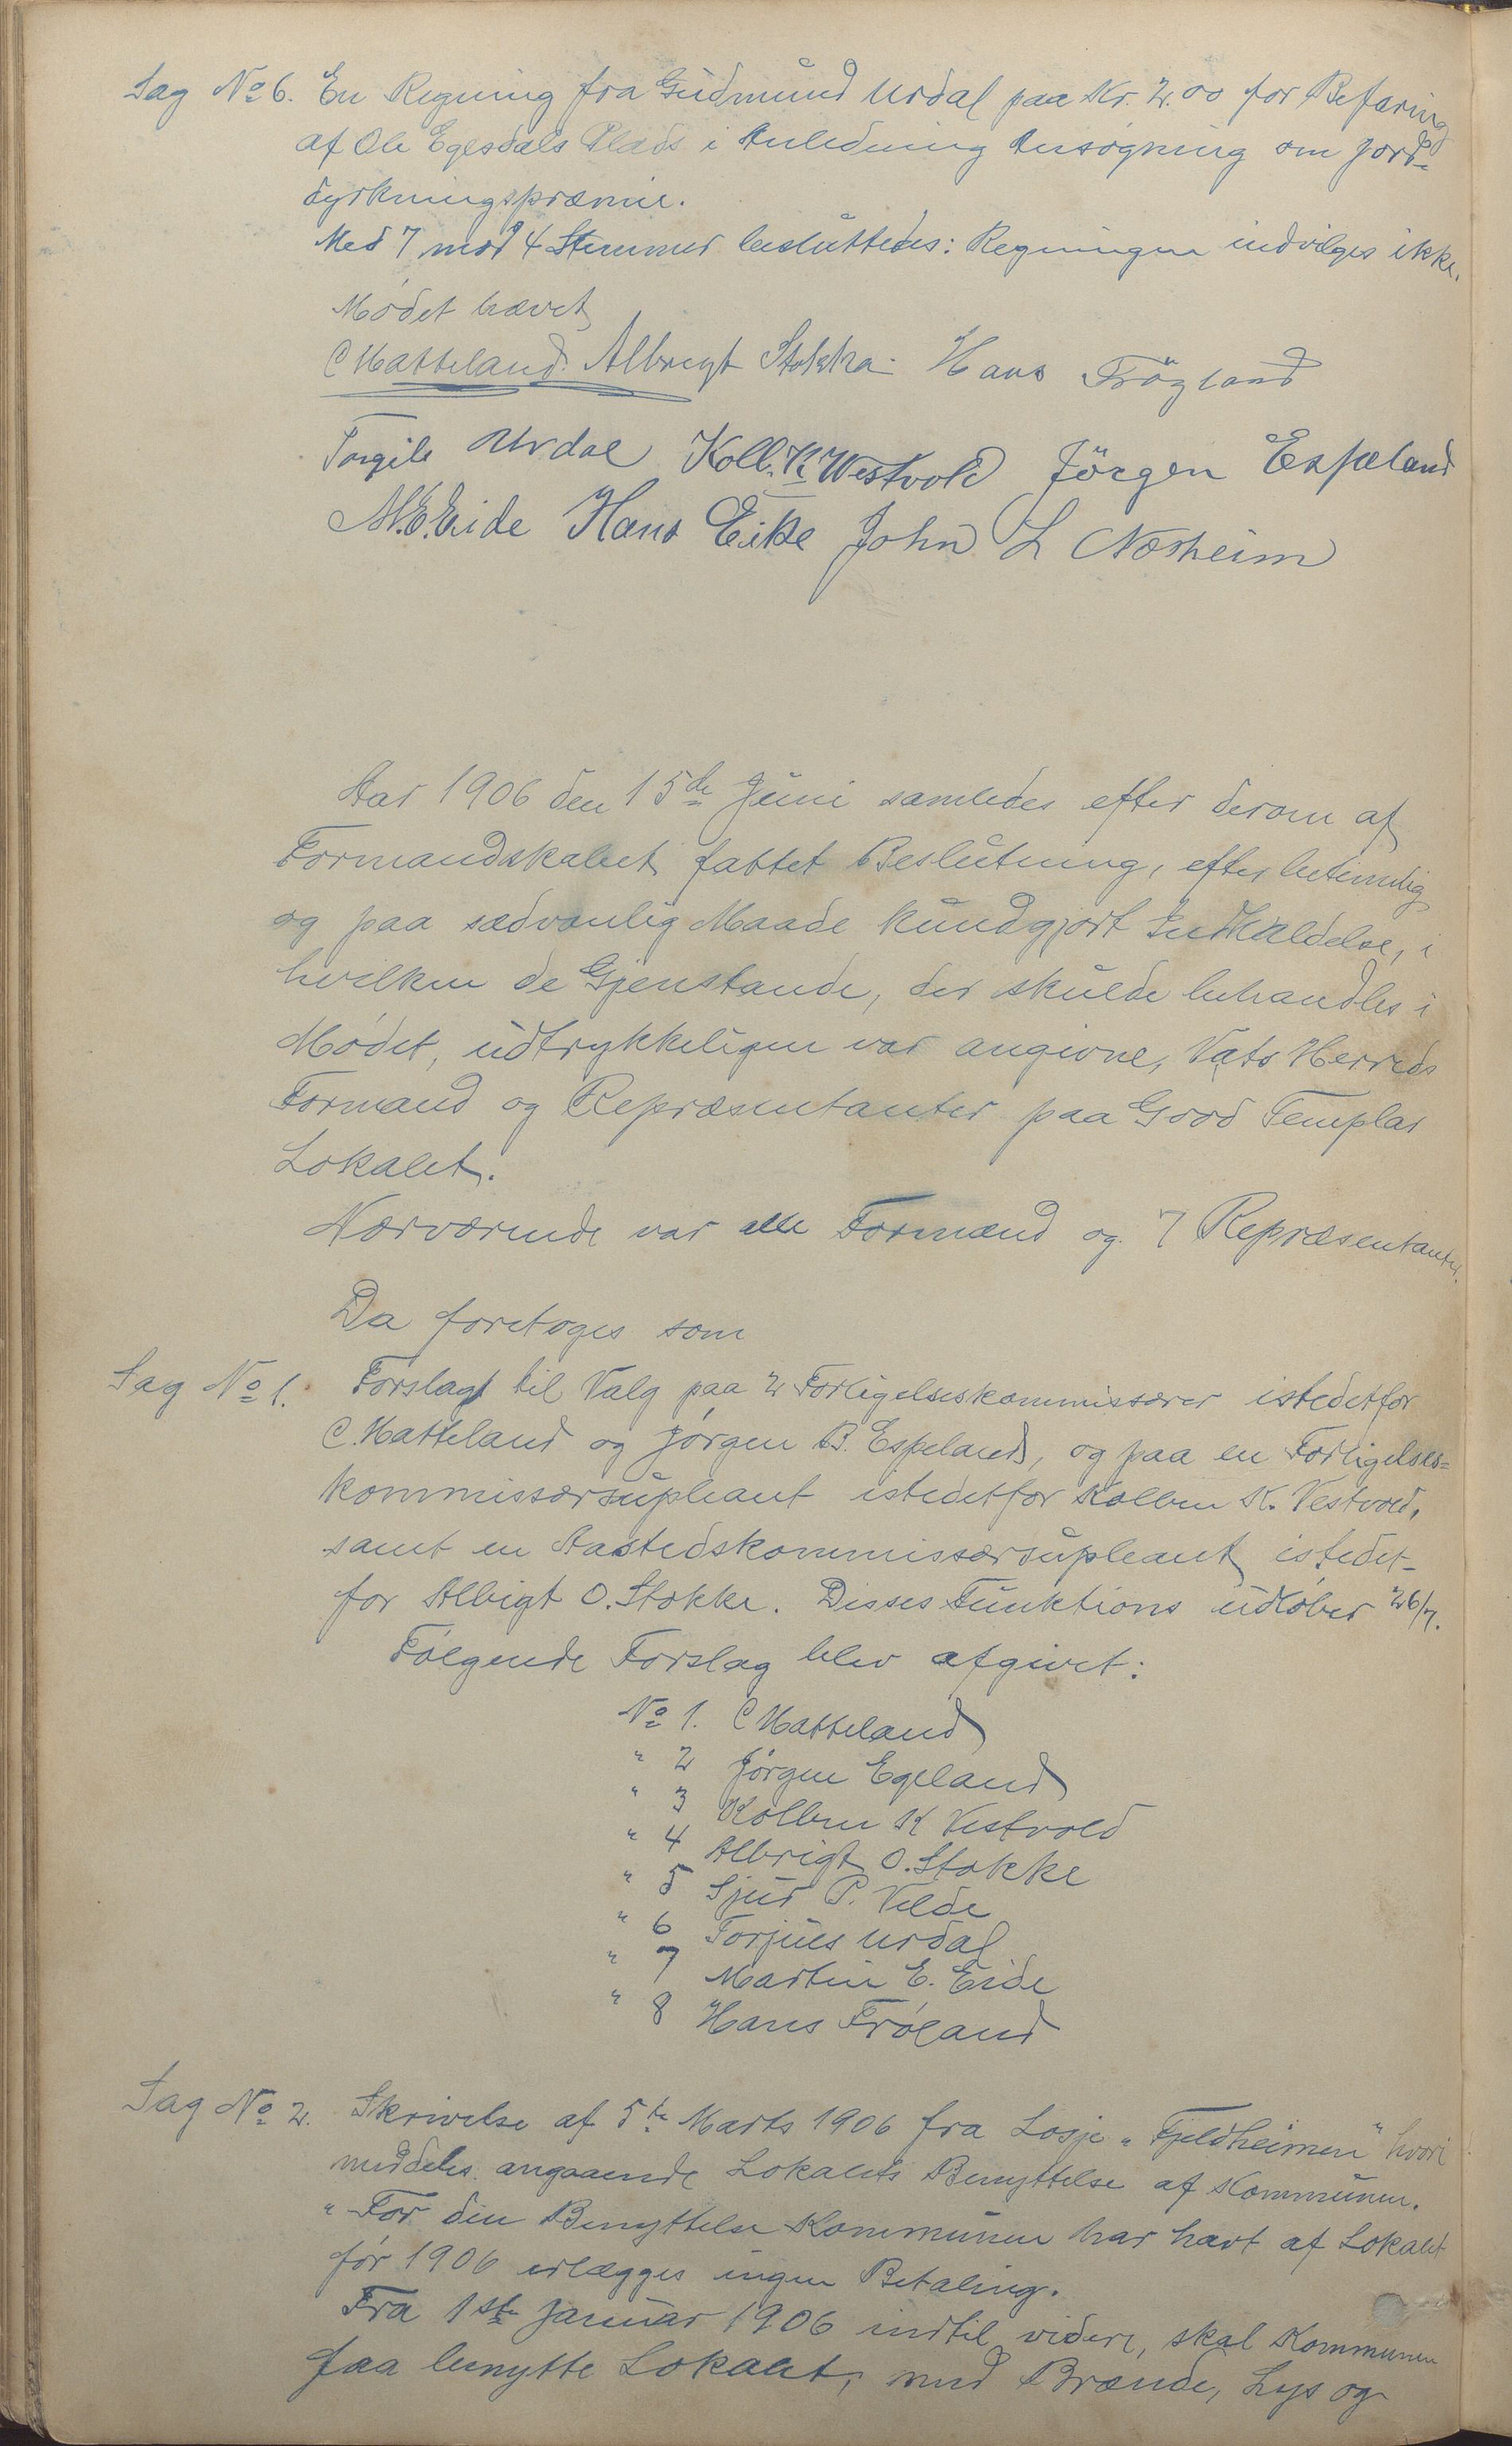 Sag No 6. En Regning fra Gudmund Urdal paa Kr. 2.00 for Befaring
af Ole Egesdals Plads i Anledning Ansøgning om Jord-
dyrkningspræmie.
Med 7 mod 4 Stemmer besluttedes: Regningen indvilges ikke.
Mødet hævet
C Matteland. Albregt Stokka Hans Frögland
Torgils Urdal Koll. K. Westvold Jörgen Espeland
M.E. Eide Hans Eike John L Næsheim
Aar 1906 den 15de Juni samledes efter derom af
Formandskabet fattet Beslutning, efter betimelig
og paa sædvanlig Maade kundgjort Indkaldelse, i
hvilken de Gjenstande, der skulde behandles i
Mødet, udtrykkeligen var angivne, Vats Herreds
Formænd og Repræsentanter paa Good Templar
Lokalet.
Nærværende var alle Formænd og 7 Repræsentanter.
Da foretoges som
Sag No 1. Forslag til Valg paa 2 Forligelseskommissærer istedetfor
C. Matteland og Jørgen B. Espeland, og paa en Forligelses=
kommissærsupleant istedetfor Kolben K. Vestvold,
samt en Aastedskommissærsupleant istedet-
for Albrigt O. Stokke. Disses Funktions udløber 26/7.
Følgende Forslag blev afgivet:
No 1. C Matteland
" 2 Jørgen Egeland
" 3 Kolben K Vestvold
" 4 Albrigt O. Stokke
" 5 Sjur P. Velde
" 6 Torjues Urdal
" 7 Martin E. Eide
" 8 Hans Frøland
Sag No 2. Skrivelse af 5te Marts 1906 fra Losje "Fjeldheimen" hvori
meddeles angaaende Lokalets Benyttelse af Kommunen.
"For den Benyttelse Kommunen har havt af Lokalet
før 1906 erlægges ingen Betaling.
Fra 1ste Januar 1906 indtil videre, skal Kommunen
faa benytte Lokalet, med Brænde, Lys og